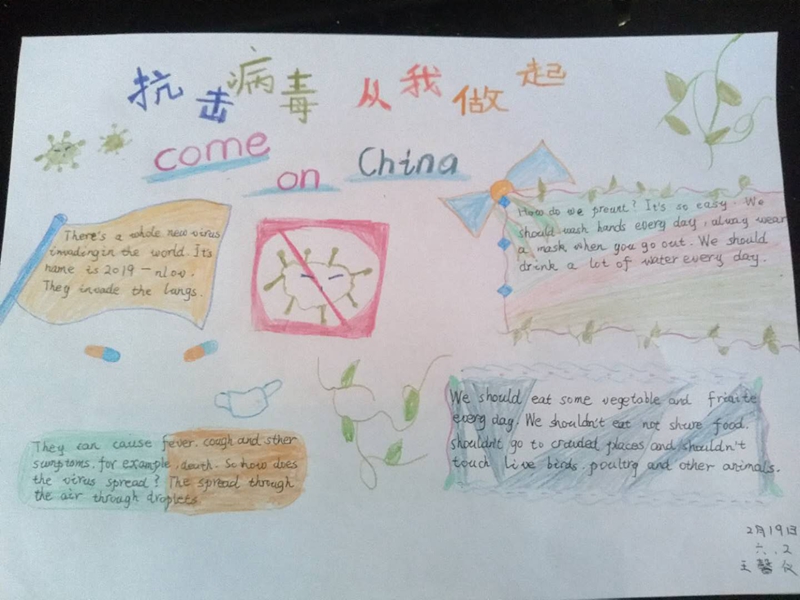 抗击病毒 从我做起
come on China
There's a whole new virus
invading in the world. It's
name is 2019-nCov.
They invade the lungs.
How do we preant? It's so easy. We
should wash hands every day, alway wear
a mask when you go out. We should
drink a lot of water every day.
They can cause fever. cough and other
sumptoms. for example, death. So how does
the virus spread? The spread through
the air through droplets
We should eat some vegetable and friaite
every day. We shouldn't eat not shure food.
shouldn't go to crowded places and shouldn't
touch live birds. poultry and other animals.
2月19日
六.2
王馨仪